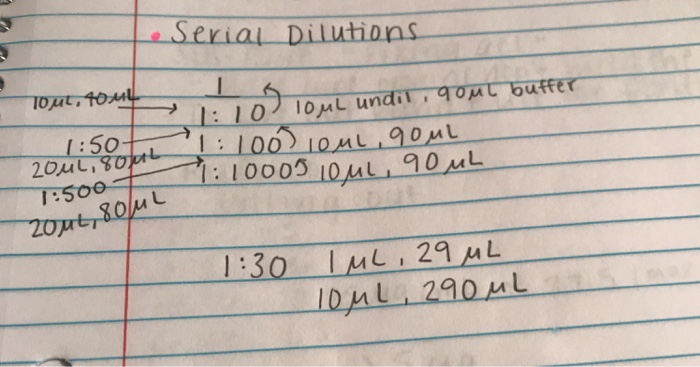 • Serial Dilutions
1
10µL, 40µL → 1:10 10µL undil, 90µL buffer
1:50 → 1:100 10µL, 90µL
20µL, 80µL
1:500 → 1:1000 10µL, 90µL
20µL, 80µL
1:30 1µL, 29µL
10µL, 290µL